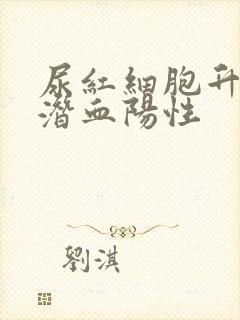 尿紅細胞升
潛血陽性
劉淇